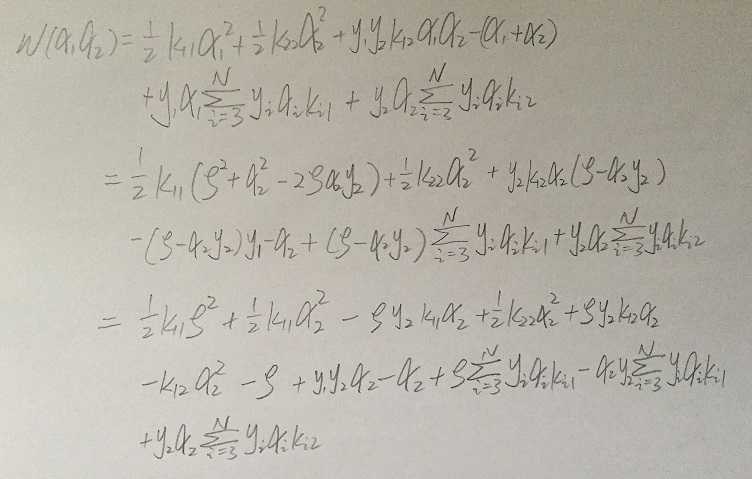 W(α₁α₂) = ½k₁₁α₁² + ½k₂₂α₂² + y₁y₂k₁₂α₁α₂ - (α₁+α₂)
+ y₁α₁∑ᵢ₌₃ᴺ yᵢαᵢkᵢ₁ + y₂α₂∑ᵢ₌₃ᴺ yᵢαᵢkᵢ₂
= ½k₁₁(ζ² + α₂² - 2ζα₂y₂) + ½k₂₂α₂² + y₂k₁₂α₂(ζ-α₂y₂)
-(ζ-α₂y₂)y₁ - α₂ + (ζ-α₂y₂)∑ᵢ₌₃ᴺ yᵢαᵢkᵢ₁ + y₂α₂∑ᵢ₌₃ᴺ yᵢαᵢkᵢ₂
= ½k₁₁ζ² + ½k₁₁α₂² - ζy₂k₁₁α₂ + ½k₂₂α₂² + ζy₂k₁₂α₂
-k₁₂α₂² - ζ + y₁y₂α₂ - α₂ + ζ∑ᵢ₌₃ᴺ yᵢαᵢkᵢ₁ - α₂y₂∑ᵢ₌₃ᴺ yᵢαᵢkᵢ₁
+ y₂α₂∑ᵢ₌₃ᴺ yᵢαᵢkᵢ₂